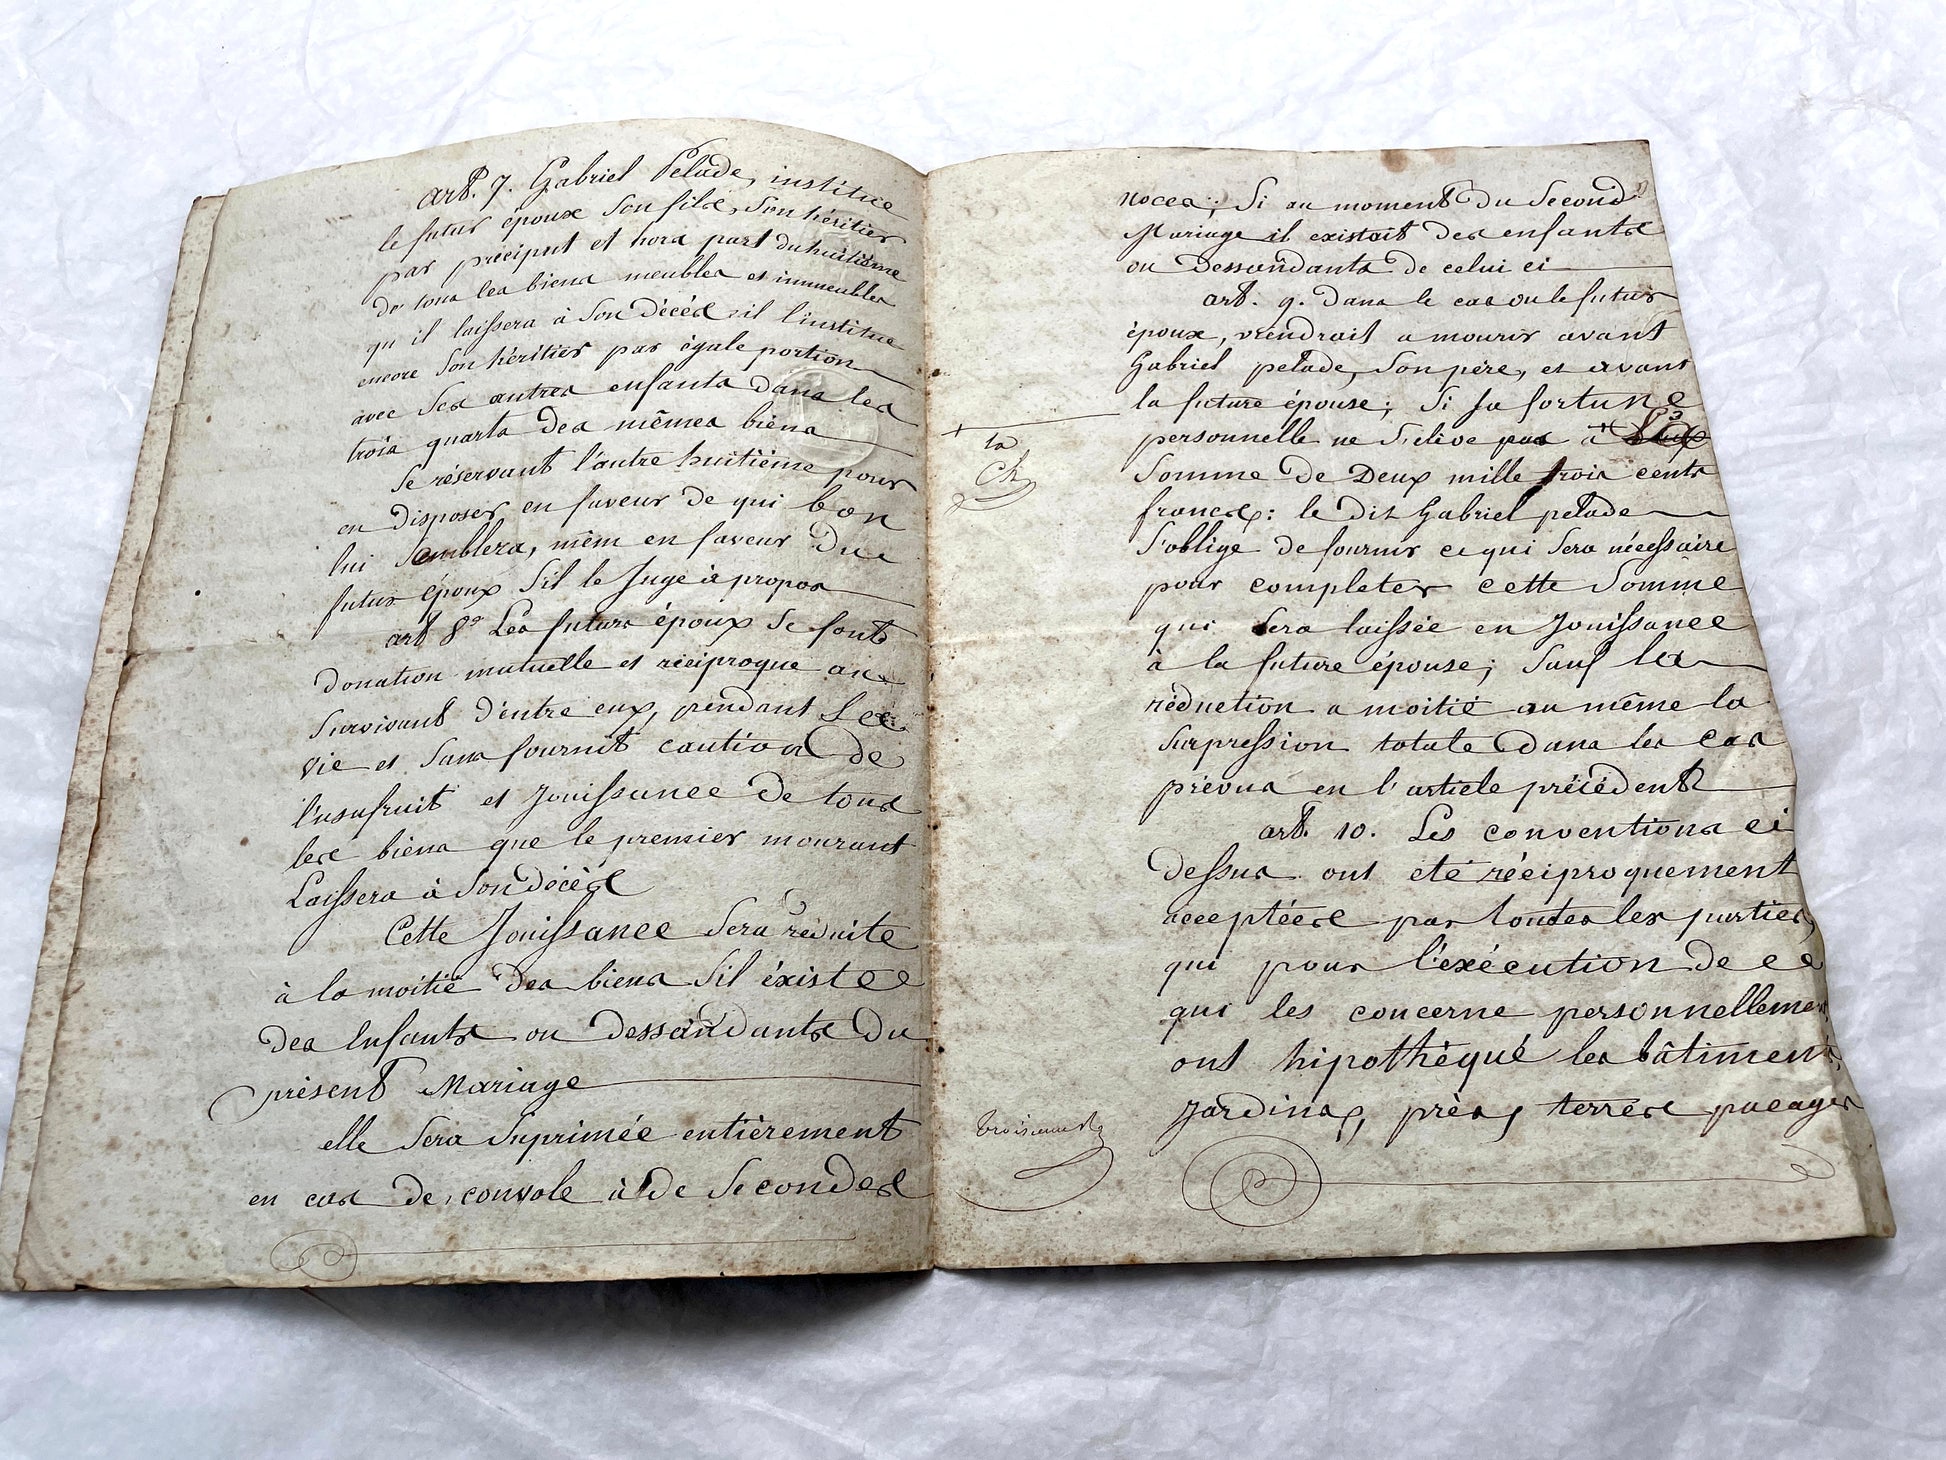 art. 7. Gabriel Pelade, institue
le futur époux Son fils, Son héritier
par préciput et hors part du huitième
de tous les biens meubles et immeubles
qu il laissera à Son Décés il l'institue
encore Son héritier par égale portion
avec Ses autres enfants Dans les
trois quarts des mêmes biens
Se réservant l'autre huitième pour
en Disposer en faveur de qui bon
lui Semblera, mêm en faveur Du
futur époux S'il le Juge à propos
art 8° Les futurs époux Se font
Donation mutuelle et réciproque au
Survivant D'entre eux, pendant Sa
vie et Sans fournir caution De
l'usufruit et Jouissance De tous
les biens que le premier mourant
Laissera à Son Décès
Cette Jouissance Sera réduite
à la moitié Des biens S'il éxiste
Des Enfants ou Dessandants Du
présent Mariage
elle Sera Suprimée entièrement
en cas De convole à De Secondes
noces; Si au moment Du Second
Mariage il existait Des enfants
ou Dessandants De celui ci
art. 9. Dans le cas ou le futur
époux, viendrait a mourir avant
Gabriel pelade, Son père, et avant
la future épouse; Si Sa fortune
personnelle ne S'elève pas à
la
Ch
Somme De Deux mille trois cents
francs: le Dit Gabriel pelade
S'oblige De fournir ce qui Sera nécessaire
pour completer cette Somme
qui Sera laissée en Jouissance
à la future épouse; Sauf la
réduction a moitié ou même la
Surpression totale Dans les Cas
prévus en l'article précédent
art. 10. Les conventions ci
Dessus ont été réciproquement
acceptées par toutes les parties,
qui pour l'exécution De ce
qui les concerne personnellement
ont hipothèqué les bâtiments,
Jardins, près, terres pacages
troisieme